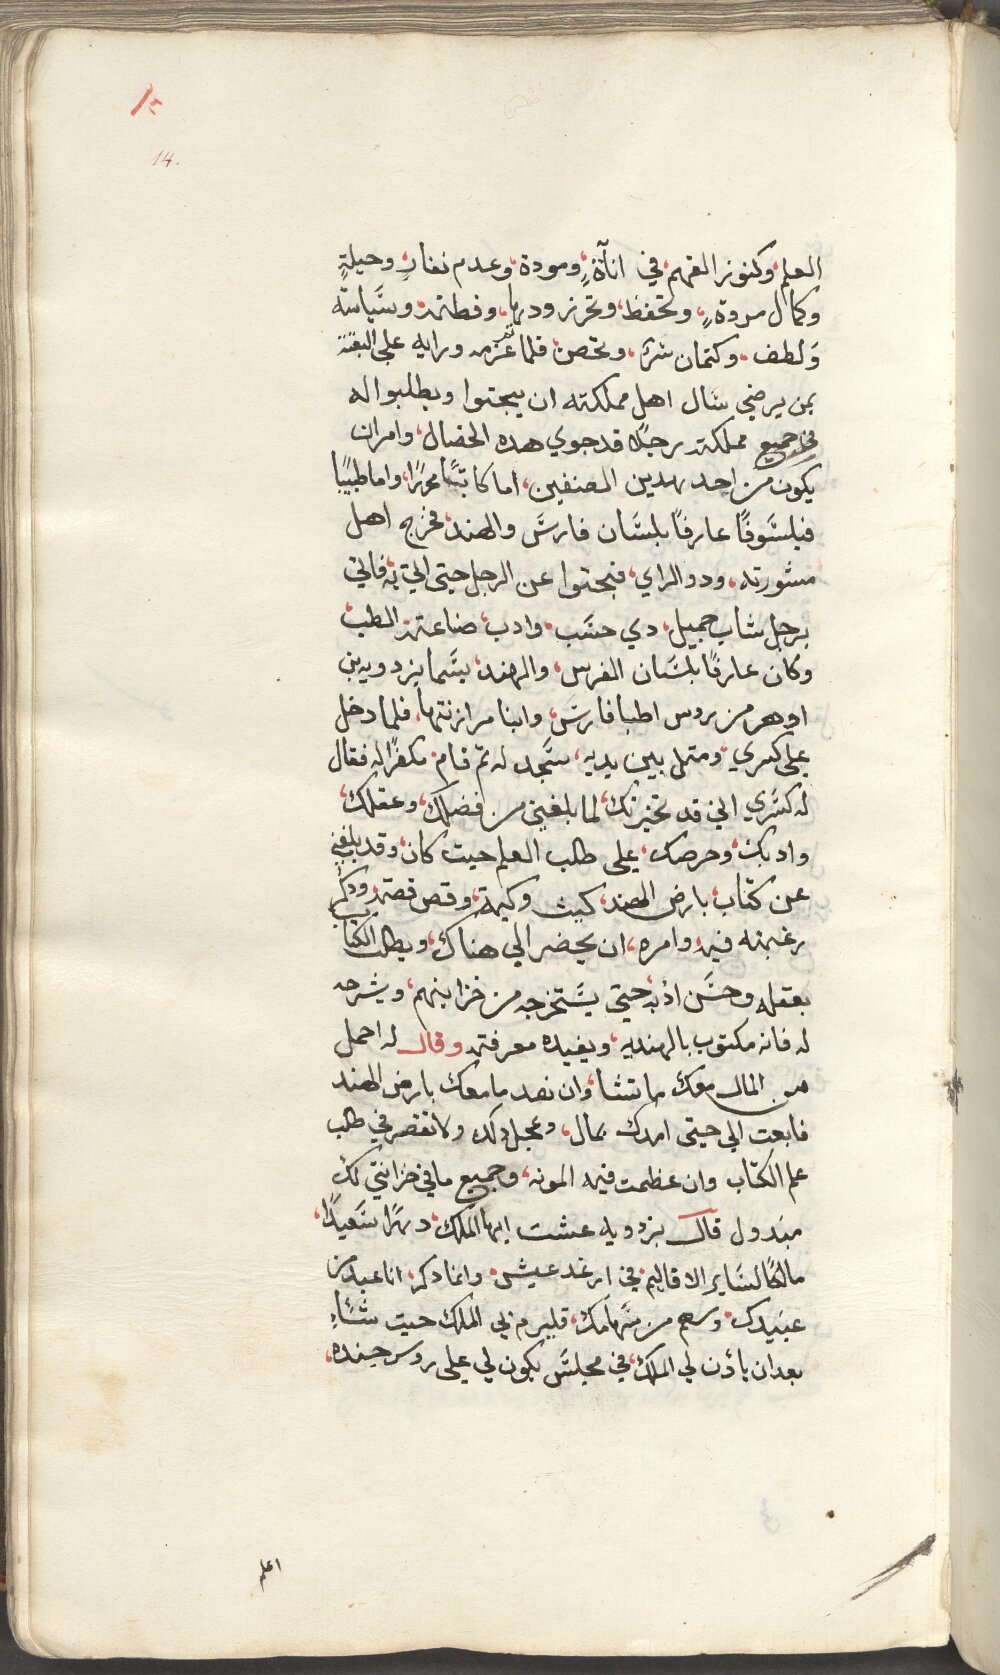 ١٢
14.
العلم، وكنوز الفهم، في اناٱةٍ، ومودة، وعدم نفارٍ، وحيلةٍ
وكمال مروةٍ، وتحفظ، وتحرز ودربا، وفطنته، وسَياسَته
وَلطف، وكتمان سَرّ، وتخص، فلما تقرر عزمه ورايه على البقته
بمن يرضي سَال اهل مملكته ان يبحتوا ويطلبوا له
في جميع مملكته رجلًا قد حوي هده الخصال، وامر ان
يكون من احد هدين المصنفين، اما كاتبًا محررًا، واما طبيبًا
فيلسَوفًا عارفًا بلسَان فارسَ والهند، فخرج اهل
مشورته، ودو الراي، فبحتوا عن الرجل حيتي اليّ به، فاتي
برجل شاب جميل، دي حسَب، وادب، صناعته الطب،
وكان عارفًا بلسَان الفرس، والهند، يسَما بزدويه بن
ادهر من روس اطبا فارسَ، وابنا مرازنتها، فلما دخل
علي كسري، ومتل بين يديه، سَجد له تم قام مكفرًا له فقال
له كسَري اني قد تخيرتك، لما بلغني من فضلك، وعقلك،
وادبك، وحرصك، علي طلب العلم حيت كان، وقد بلغني
عن كتاب، بارض الهند، كيت وكيت، وقص قصته ودكر
رغبته فيه، وامره، ان يحضر الي هناك، ويطلب الكتاب
بعقله وحسَن ادبه، حيتي يسَتخرجه من خزاينهم، ويشرحه
له فانه مكتوب بالهنديه، ويفيده معرفته وقال له احمل
من المال معك ما تشا، وان نصد ما معك بارض الهند
فابعت الي حيتي امدك بمال، وعجل دلك ولا تقصر في طلب
علم الكتاب وان عظمت فيه المونه، وجميع ما في خزانتي لك
مبدول قال بزدويه عشت ايها الملك، دهرًا سَعيدًا،
مالكًا لسَاير الاقاليم، في ارغد عيش، وانما دكر، انا عبد من
عبيدك، وسهم من سَهامك، فليرم بي الملك حيت شَاء
بعد ان يأدن لي الملك، في مجلسَ يكون لي علي روس جنده،
اعلم